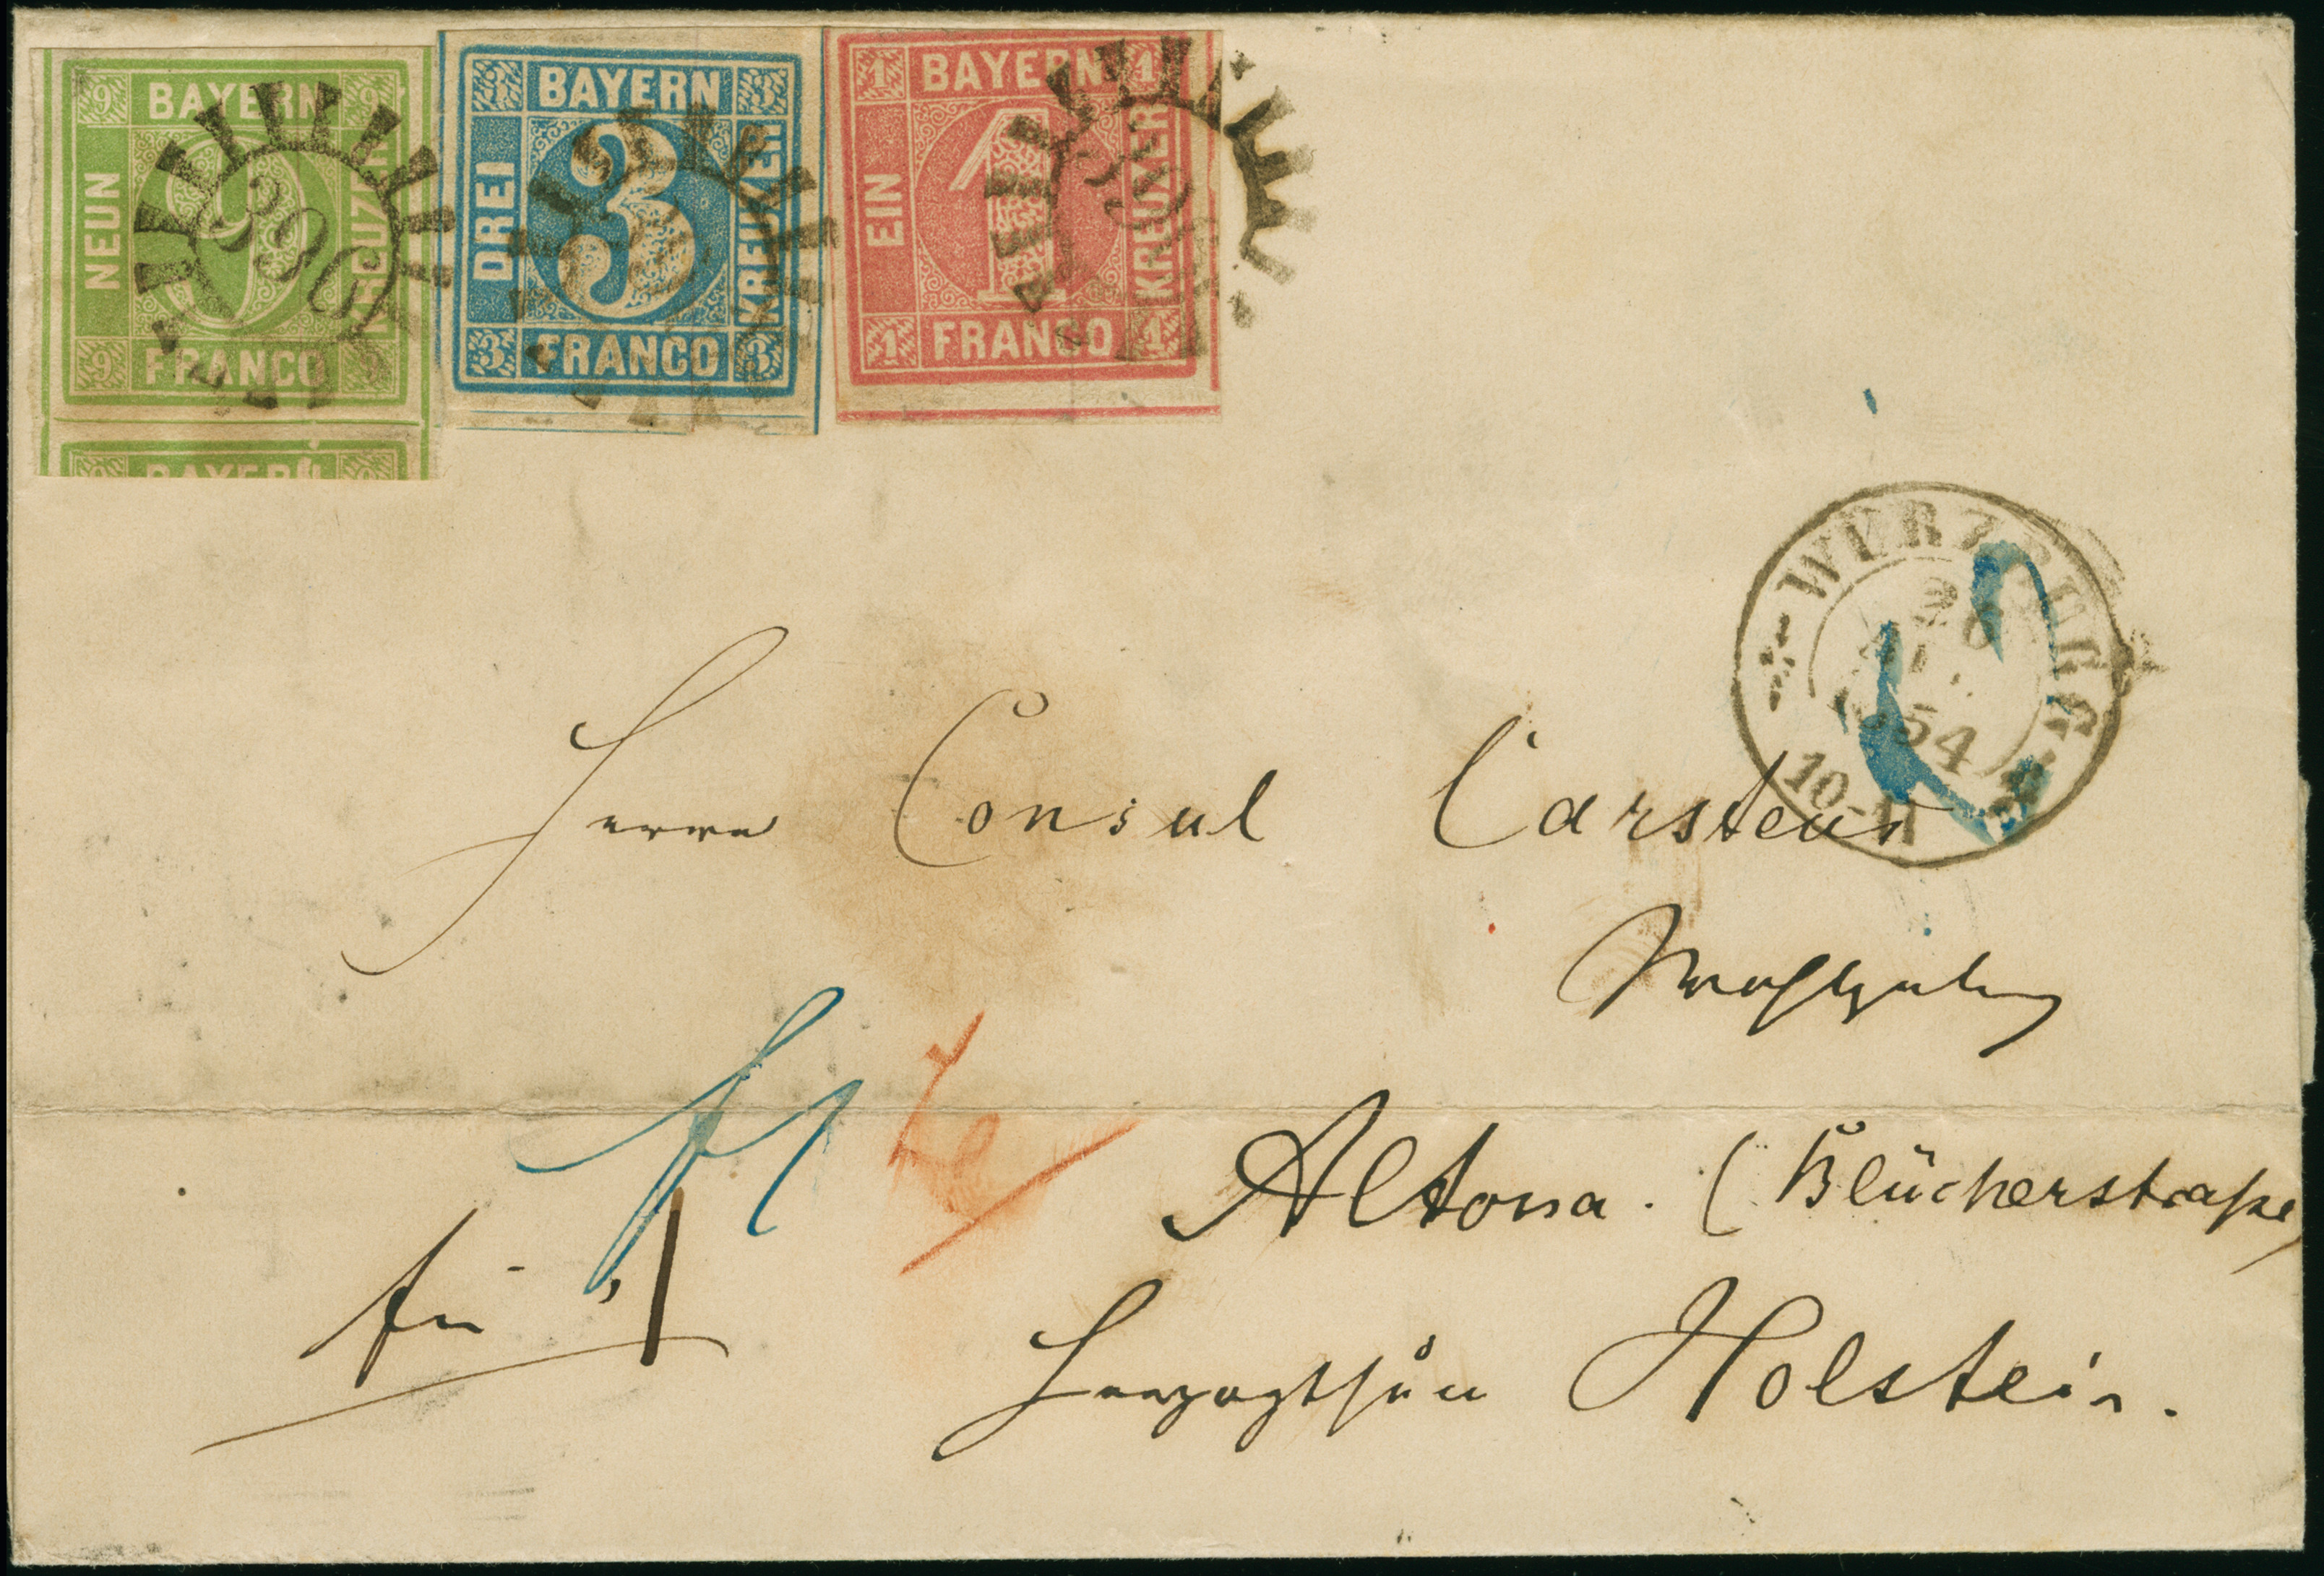 9 BAYERN 9
NEUN
9
KREUZER
9 FRANCO 9
390
BAYERN
3 BAYERN 3
DREI
3
KREUZER
3 FRANCO 3
1 BAYERN 1
EIN
1
KREUZER
1 FRANCO 1
390
WÜRZBURG
26
1854
10-11
Herrn Consul Carstens
Altona. (Blücherstraße)
Herzogthum Holstein.